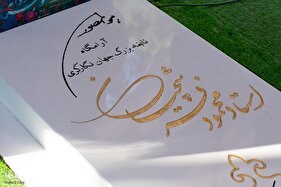 هو المصور
آرامگاه
نابغه بزرگ جهان نگارگری
استاد محمود فرشچیان